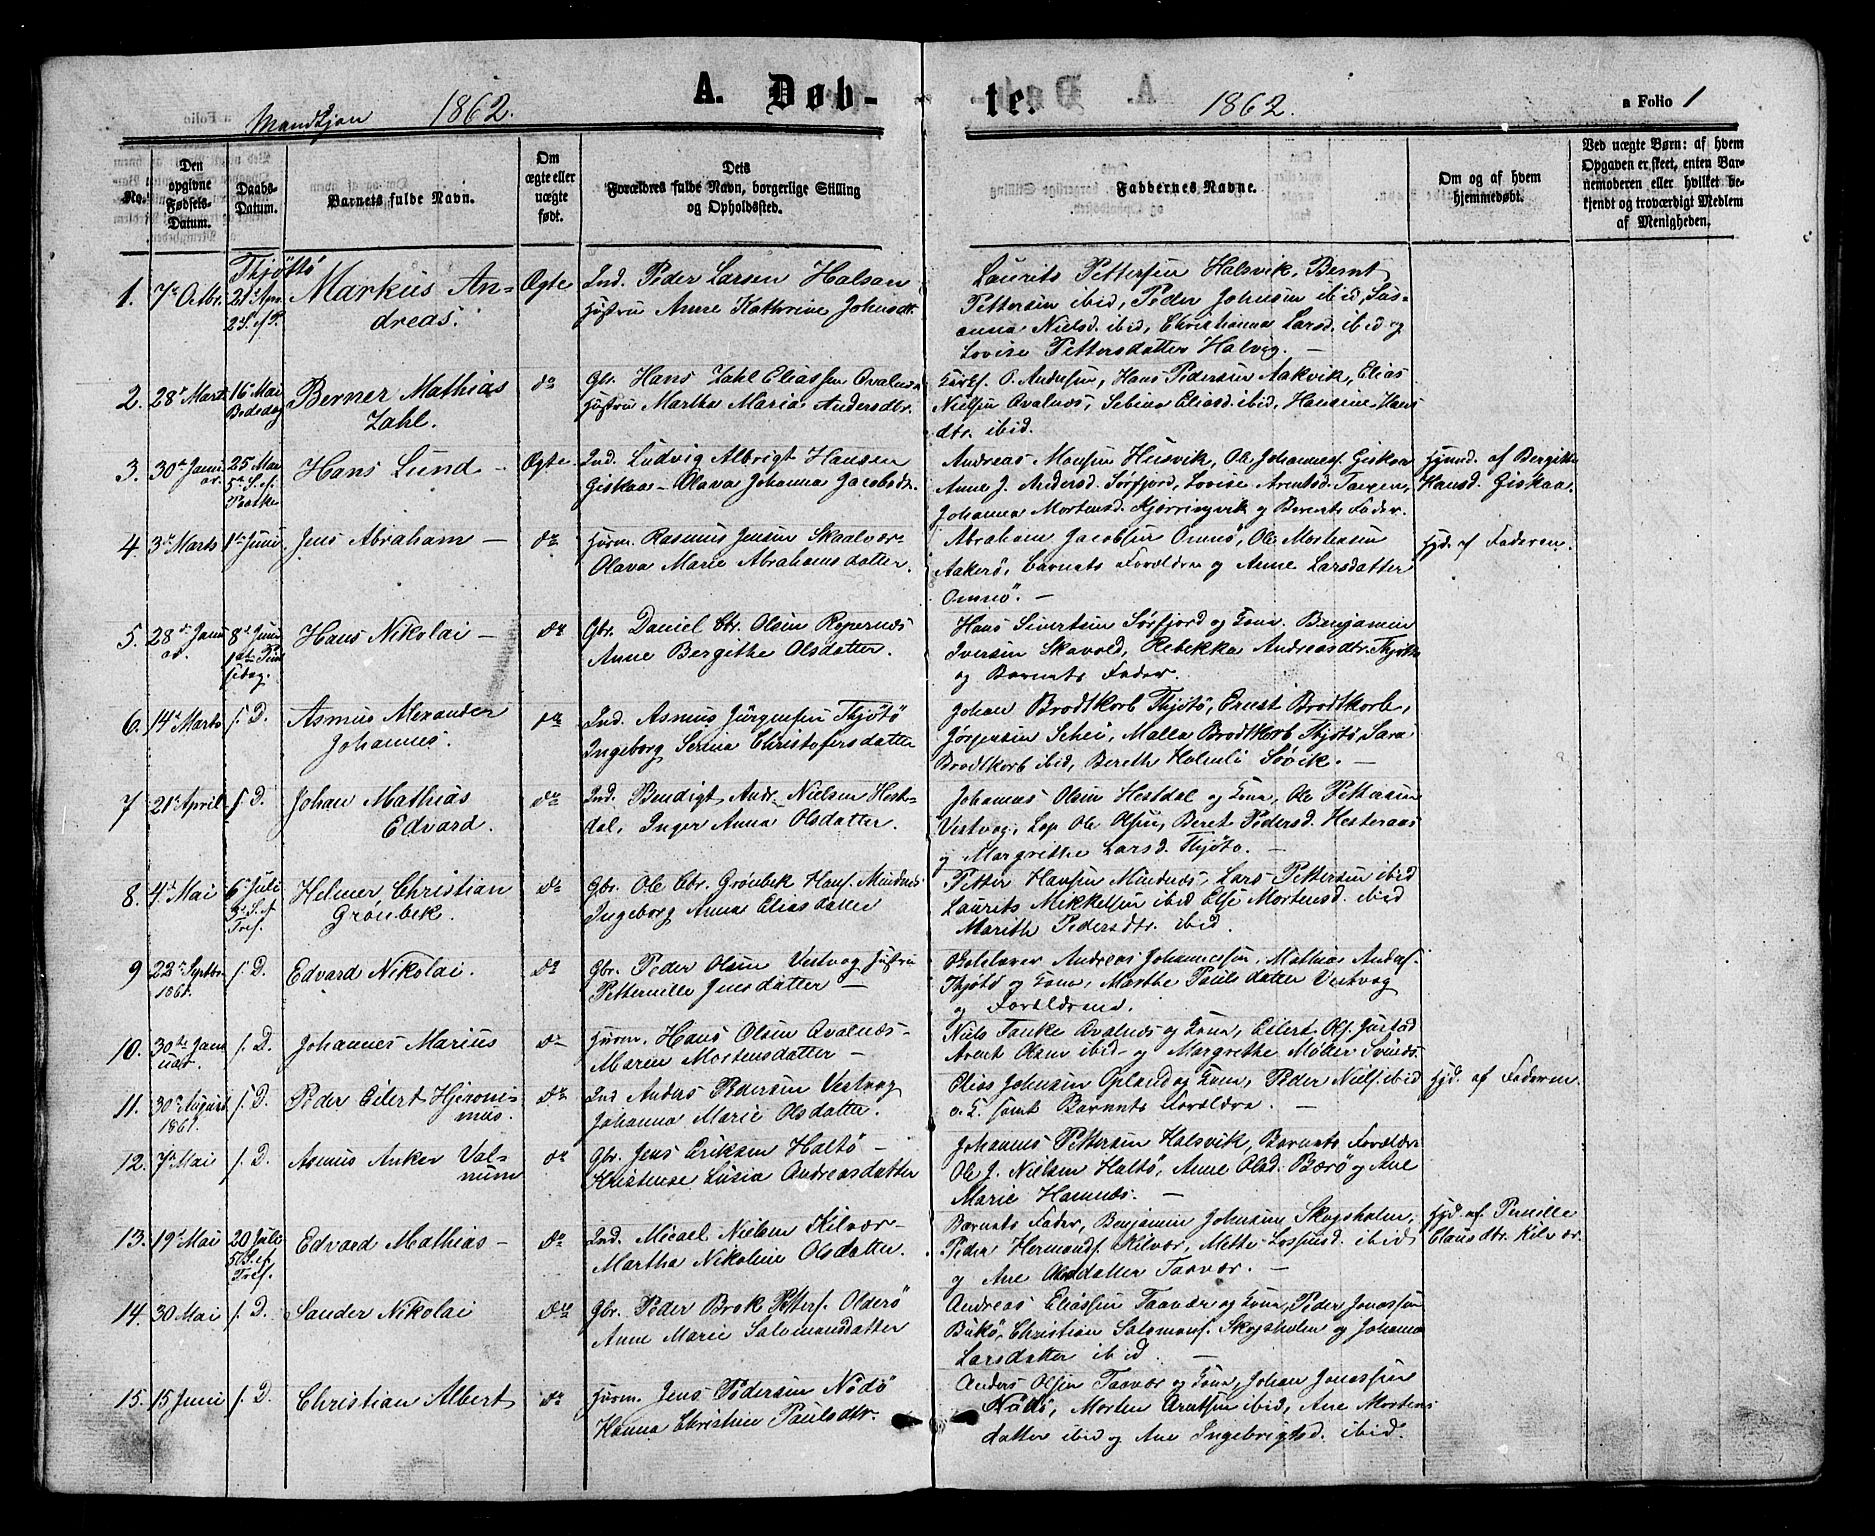 A. Døb-
te.
Mandkjøn 1862.
1862.
a Folio 1
No.
Den opgivne Fødsels-Datum.
Daabs-Datum.
Barnets fulde Navn.
Om ægte eller uægte født.
Dets Forældres fulde Navn, borgerlige Stilling og Opholdssted.
Faddernes Navne.
Om og af hvem hjemmedøbt.
Ved uægte Børn: af hvem
Opgaven er skeet, enten Bar-
nemoderen eller hvilket be-
kjendt og troværdigt Medlem
af Menigheden.
Thjøttö
1. 7de Octbr. 21de Apr. 2 S. e. P. Markus An- Ægte Ind. Peder Larsen Halsan
dreas. Hustru Anne Kathrine Johnsdtr.
Laurits Pettersen Halsvik, Bernt
Pettersen ibid, Peder Johnsen ibid, Sus-
anna Nielsd. ibid, Christianna Larsd. ibid og
Lovise Pettersdatter Halvig. —
2. 28de Marts 16 Mai Bededag Berner Mathias do Gbr. Hans Zahl Eliassen Qvalnes
Zahl. Hustru Martha Maria Andersdtr.
O. Andersen, Hans Pedersen Aakvik, Elias
Nielsen Qvalnæs, Sebina Eliasd. ibid, Hansine Hans
dtr. ibid.
3. 30te Janu 25 Mai Hans Lund — Ægte Ind. Ludvig Albrigt Hansen
ar. 5te S. e. Paaske Giskaa — Olava Johanna Jacobsdtr.
Andreas Monsen Husvik, Ole Johannesf. Giskaa
Anne J. Andersd. Sørfjord, Lovise Arentsd. Tangen,
Johanna Mortensd. Kjærringvik og Barnets Fader.
Hjmd. af Bergitte
Hansd. Giskaa.
4. 3de Marts 1te Juni Jens Abraham — do Huusm. Rasmus Jensen Skaalvær
Olava Marie Abrahamsdatter.
Abraham Jacobsen Omnö, Ole Mortensen
Aakerö, Barnets Forældre og Anne Larsdatter
Omnö. —
Hjd. af Faderen.
5. 28de Janu 8de Juni Hans Nikolai — do Gbr. Daniel Chr. Olsen
ar. Anne Bergithe Olsdatter.
Hans Sivertsen Sörfjord og Kone, Benjamin
Iversen Skavold, Rebekka Andreasdtr. Thjøttö
og Barnets Fader.
6. 14de Marts s. D. Asmus Alexander do Ind. Asmus Jürgensen Thjötö
Johannes. Ingeborg Serina Christofersdatter
Johan Brodtkorb Thjötö, Ernst Brodtkorb,
Jörgensen Schei, Malla Brodtkorb Thjötö, Sara
Brodtkorb ibid, Bereth Holmli Søvik. —
7 21de April s. D. Johan Mathias do Ind. Bendigt Andr. Nielsen Hest-
Edvard. dal, Inger Anna Olsdatter.
Johannes Olsen Hestdal og Kone, Ole Pettersen
Vestvog, Ole Olsen, Beret Pedersd. Hesteraas
og Margrethe Larsd. Thjötö. —
8. 4de Mai 6 Juli 3 S. e. Tref. Helmer Christian do Gbr. Ole Chr. Grönbek Hansf. Mindnes
Grönbek. Ingeborg Anna Eliasdatter
Petter Hansen Mindnæs, Lars Pettersen ibid
Laurits Mikkelsen ibid Else Mortensd. ibid
Marith Pedersdtr. ibid.
9 22de Septbr. s. D. Edvard Nikolai. do Gbr. Peder Olsen Vestvog Hustru
1861. Petternille Jensdatter —
Andreas Johannessen, Mathias Andersf.
Thjötö og Kone, Marthe Paulsdatter Vestvog
og Forældrene.
10. 30te Janu s. D. Johannes Marius do Huusm. Hans Olsen Qvalnæs —
uar. Maren Mortensdatter —
Niels Tanke Qvalnæs og Kone, Eilert Olsf. Justad
Arnt Olsen ibid og Margrethe Møller
11. 30te August s. D. Peder Eilert Hjeroni- do Ind Anders Pedersen Vestvog
1861. mus. Johanna Marie Olsdatter.
Elias Johnsen Opland og Kone, Peder Nielsf. ibid
o. K. samt Barnets Forældre. —
Hjd. af Faderen.
12. 7de Mai s. D. Asmus Anker Val- do Gbr. Jens Eriksen Haltö —
num Kristense Lusia Andreasdatter
Johannes Pettersen Halsvik, Barnets Forældre
Ole J. Nielsen Haltö, Anne Olsd. Bærö og Ane
Marie Hamnæs. —
13. 19de Mai 20 Juli 5 S. e. Tref. Edvard Mathias — do Ind. Micael Nielsen Kilvær —
Martha Nikoline Olsdatter.
Barnets Fader, Benjamin Johnsen Skogsholm,
Peder Hermandsf. Kilvær, Mette ibid
og Ane Olsdatter Taavær. —
Hjd. af Pernille
Clausdtr. Kilvær.
14. 30 Mai s. D. Sander Nikolai do Gbr. Peder Brok Pettersf. Olderö
Anne Marie Salomonsdatter
Andreas Eliassen Taavær og Kone, Peder Jonassen
Bukö, Christian Salomonsf. Skogsholm og Johanna
Larsdatter ibid. —
15. 15 Juni s. D. Christian Albert do Huusm. Jens Pedersen Nödö
Hanna Christine Paulsdtr.
Anders Olsen Taavær og Kone, Johan Jonassen
Nödö, Morten Arntsen ibid, Ane Mortens
datter ibid og Ane Ingebrigtsd. ibid.